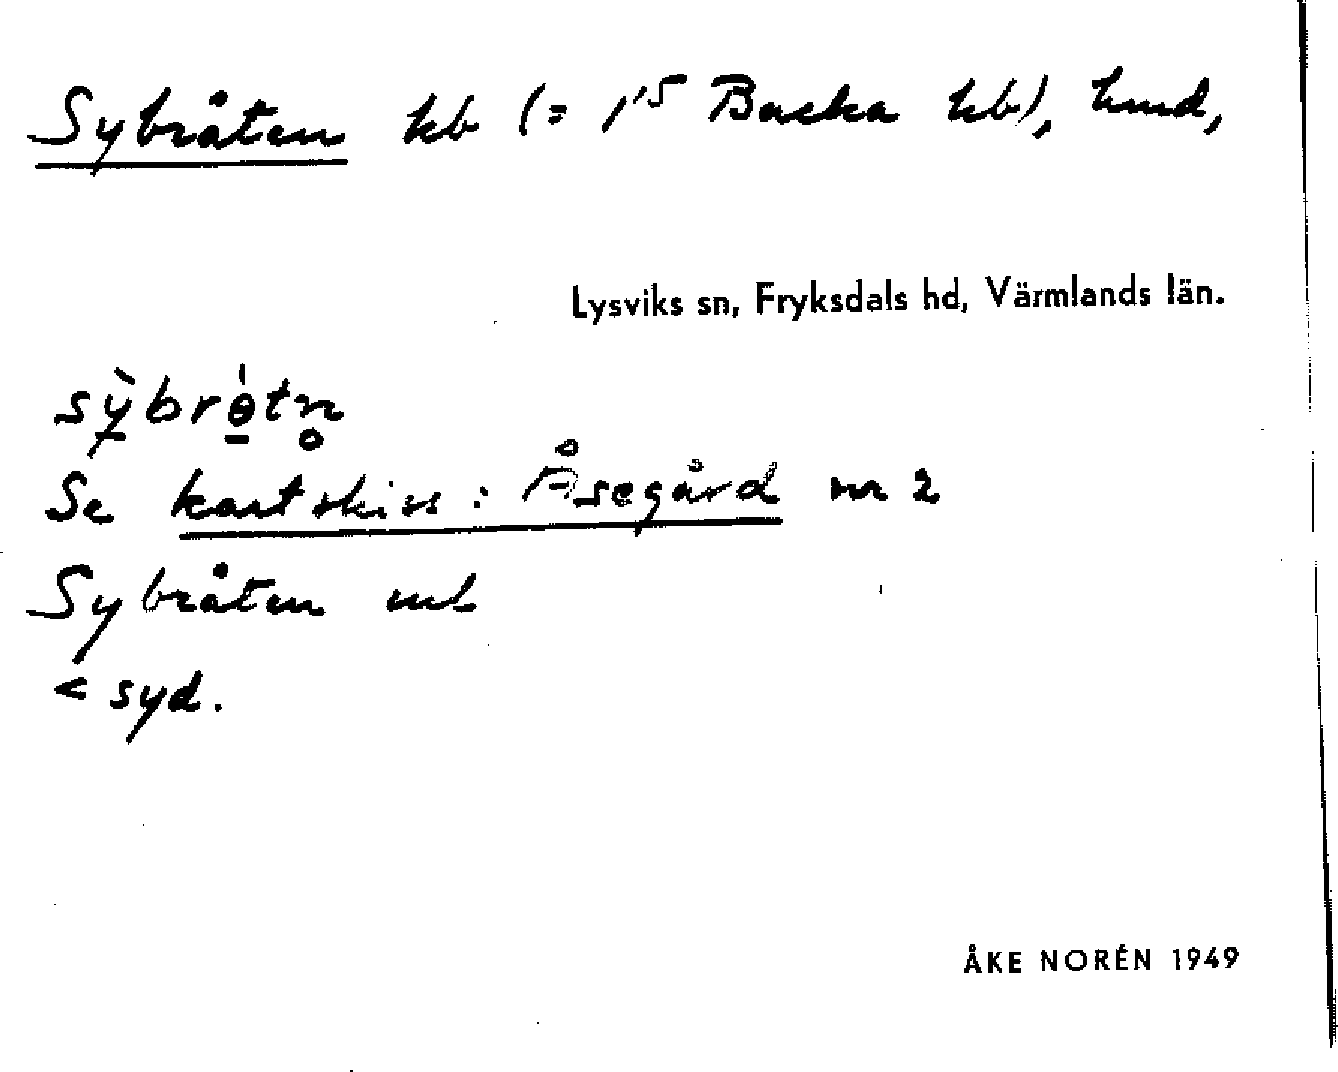 Sybråten hb (= 1/5 Backa hb), hmd,
Lysviks sn, Fryksdals hd, Värmlands län.
sỳ̠brɵ̠́tn̥
Se kartskiss: Åsegård nr 2
Sybråten
< syd.
ÅKE NORÉN 1949